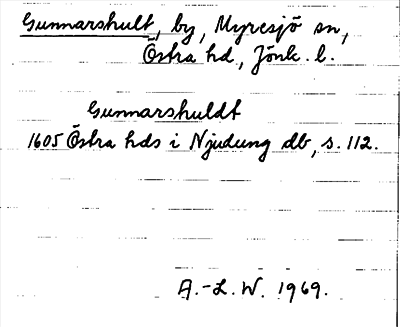 Gunnarshult, by, Myresjö sn,
Östra hd, Jönk. l.
Gunnarshuldt
1605 Östra hds i Njudung db, s. 112.
A.-L.W. 1969.